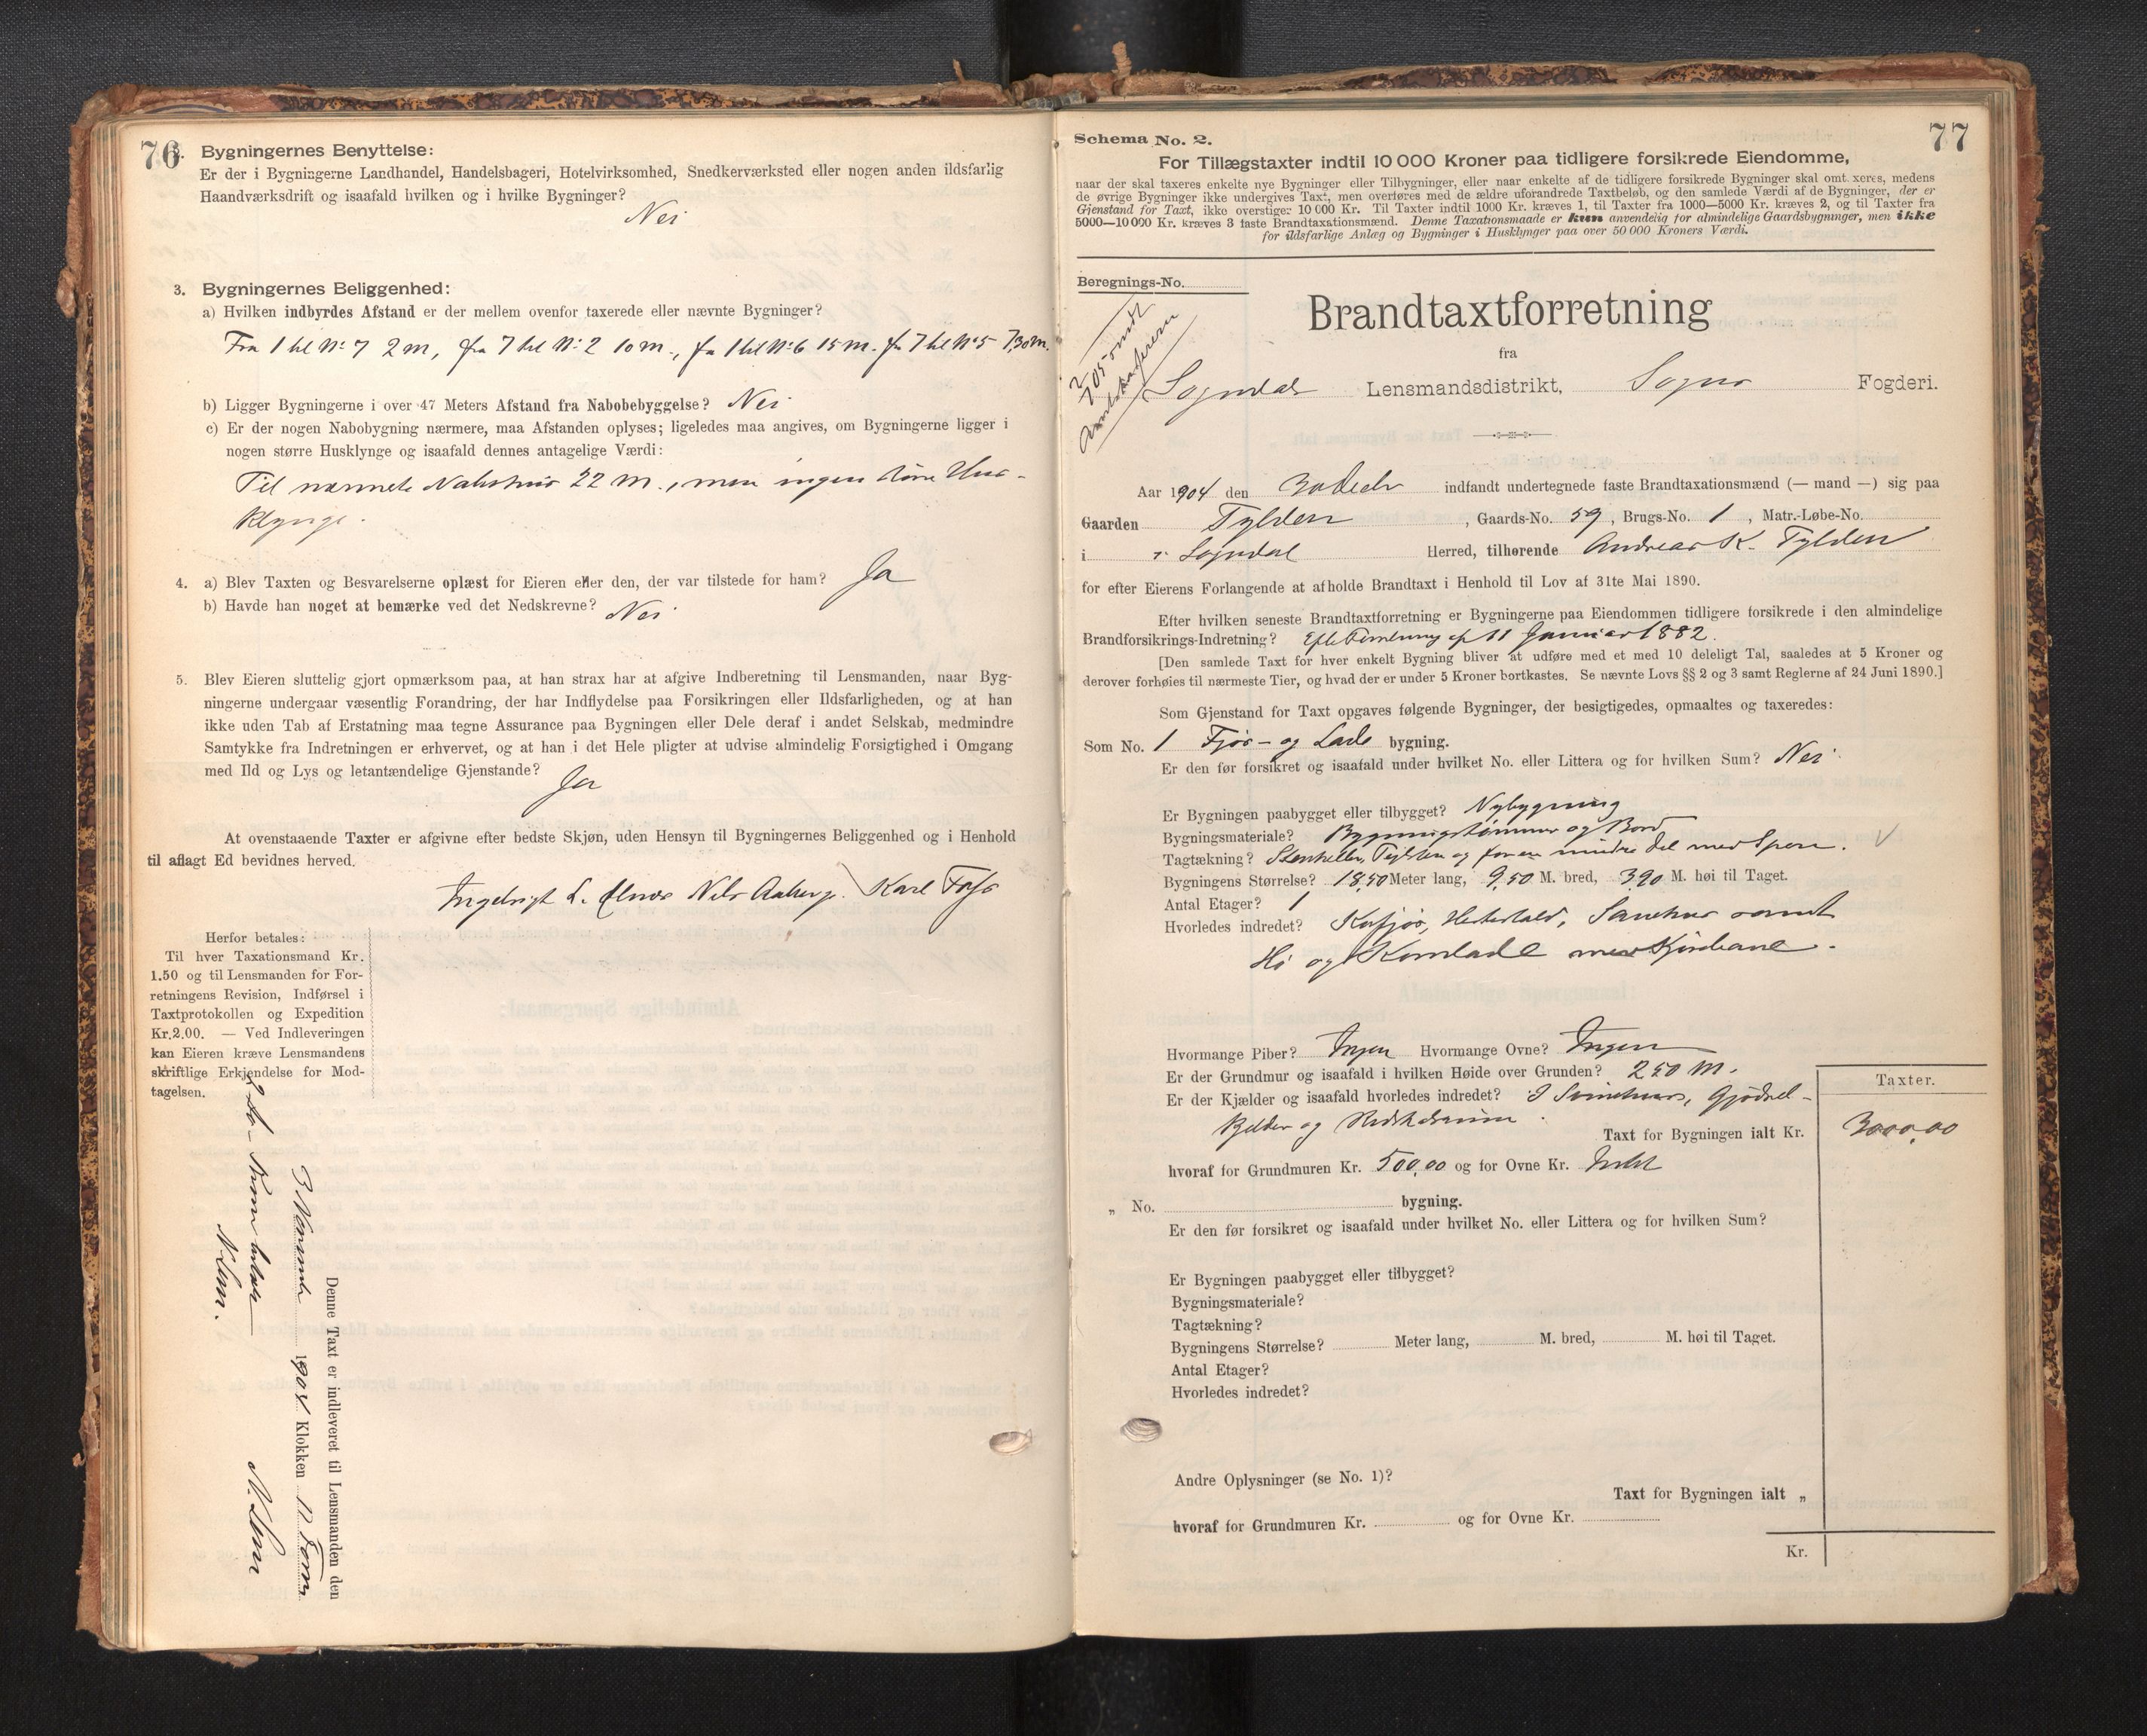 76
2. Bygningernes Benyttelse:
Er der i Bygningerne Landhandel, Handelsbageri, Hotelvirksomhed, Snedkerværksted eller nogen anden ildsfarlig
Haandværksdrift og isaafald hvilken og i hvilke Bygninger?
Nei
3. Bygningernes Beliggenhed:
a) Hvilken indbyrdes Afstand er der mellem ovenfor taxerede eller nævnte Bygninger?
Fra 1 til No 7 2 m, fra 7 til No 2 10 m., fra 1 til No 6 15 m. fra 7 til No 5 7,30 m.
b) Ligger Bygningerne i over 47 Meters Afstand fra Nabobebyggelse? Nei
c) Er der nogen Nabobygning nærmere, maa Afstanden oplyses; ligeledes maa angives, om Bygningerne ligger i
nogen større Husklynge og isaafald dennes antagelige Værdi:
Til nærmeste Nabohus 22 m., men ingen større Hus-
klynge.
4. a) Blev Taxten og Besvarelserne oplæst for Eieren eller den, der var tilstede for ham? Ja
b) Havde han noget at bemærke ved det Nedskrevne? Nei
5. Blev Eieren sluttelig gjort opmærksom paa, at han strax har at afgive Indberetning til Lensmanden, naar Byg-
ningerne undergaar væsentlig Forandring, der har Indflydelse paa Forsikringen eller Ildsfarligheden, og at han
ikke uden Tab af Erstatning maa tegne Assurance paa Bygningen eller Dele deraf i andet Selskab, medmindre
Samtykke fra Indretningen er erhvervet, og at han i det Hele pligter at udvise almindelig Forsigtighed i Omgang
med Ild og Lys og letantændelige Gjenstande?
Ja
At ovenstaaende Taxter er afgivne efter bedste Skjøn, uden Hensyn til Bygningernes Beliggenhed og i Henhold
til aflagt Ed bevidnes herved.
Ingebrigt L. Nils Aaberge. Karl
Herfor betales:
Til hver Taxationsmand Kr.
1.50 og til Lensmanden for For-
retningens Revision, Indførsel i
Taxtprotokollen og Expedition
Kr. 2.00. — Ved Indleveringen
kan Eieren kræve Lensmandens
skriftlige Erkjendelse for Mod-
tagelsen.
Denne Taxt er indleveret til Lensmanden den
3 November 1904 Klokken 12 Form
77
Schema No. 2.
For Tillægstaxter indtil 10 000 Kroner paa tidligere forsikrede Eiendomme,
naar der skal taxeres enkelte nye Bygninger eller Tilbygninger, eller naar enkelte af de tidligere forsikrede Bygninger skal omtaxeres, medens
de øvrige Bygninger ikke undergives Taxt, men overføres med de ældre uforandrede Taxtbeløb, og den samlede Værdi af de Bygninger, der er
Gjenstand for Taxt, ikke overstiger 10 000 Kr. Til Taxter indtil 1000 Kr. kræves 1, til Taxter fra 1000—5000 Kr. kræves 2, og til Taxter fra
5000—10 000 Kr. kræves 3 faste Brandtaxationsmænd. Denne Taxationsmaade er kun anvendelig for almindelige Gaardsbygninger, men ikke
for ildsfarlige Anlæg og Bygninger i Husklynger paa over 50 000 Kroners Værdi.
Beregnings-No.
Brandtaxtforretning
fra
Sogndal Lensmandsdistrikt, Sogns Fogderi.
Aar 1904 den indfandt undertegnede faste Brandtaxationsmænd (— mand —) sig paa
Gaarden Tylden, Gaards-No. 59, Brugs-No. 1, Matr.-Løbe-No.
i Sogndal Herred, tilhørende Andreas K. Tylden
for efter Eierens Forlangende at afholde Brandtaxt i Henhold til Lov af 31te Mai 1890.
Efter hvilken seneste Brandtaxtforretning er Bygningerne paa Eiendommen tidligere forsikrede i den almindelige
Brandforsikrings-Indretning? Efter Forretning af 11 Januar 1882.
[Den samlede Taxt for hver enkelt Bygning bliver at udføre med et med 10 deleligt Tal, saaledes at 5 Kroner og
derover forhøies til nærmeste Tier, og hvad der er under 5 Kroner bortkastes. Se nævnte Lovs §§ 2 og 3 samt Reglerne af 24 Juni 1890.]
Som Gjenstand for Taxt opgaves følgende Bygninger, der besigtigedes, opmaaltes og taxeredes:
Som No. 1 Fjøs- og Lade bygning.
Er den før forsikret og isaafald under hvilket No. eller Littera og for hvilken Sum? Nei
Er Bygningen paabygget eller tilbygget? Nybygning
Bygningsmateriale? Bygningstømmer og Bord
Tagtækning? Stenheller, Teglsten og for en mindre Del med Spon.
Bygningens Størrelse? 18,50 Meter lang, 9,50 M. bred, 3,90 M. høi til Taget.
Antal Etager? 1
Hvorledes indredet? Kofjøs, Hestestald, Sauehus samt
Hø og Kornlade med Kjørebane.
Hvormange Piber? Ingen Hvormange Ovne? Ingen
Er der Grundmur og isaafald i hvilken Høide over Grunden? 2,50 M.
Er der Kjælder og isaafald hvorledes indredet? I Svinehus, Gjødsel-
kjelder og Redskabsrum.
Taxter.
Taxt for Bygningen ialt Kr. 3000,00
hvoraf for Grundmuren Kr. 500,00 og for Ovne Kr. Intet
„ No. bygning.
Er den før forsikret og isaafald under hvilket No. eller Littera og for hvilken Sum?
Er Bygningen paabygget eller tilbygget?
Bygningsmateriale?
Tagtækning?
Bygningens Størrelse? Meter lang, M. bred, M. høi til Taget.
Antal Etager?
Hvorledes indredet?
Andre Oplysninger (se No. 1)?
Taxt for Bygningen ialt „
hvoraf for Grundmuren Kr. og for Ovne Kr.
Kr.